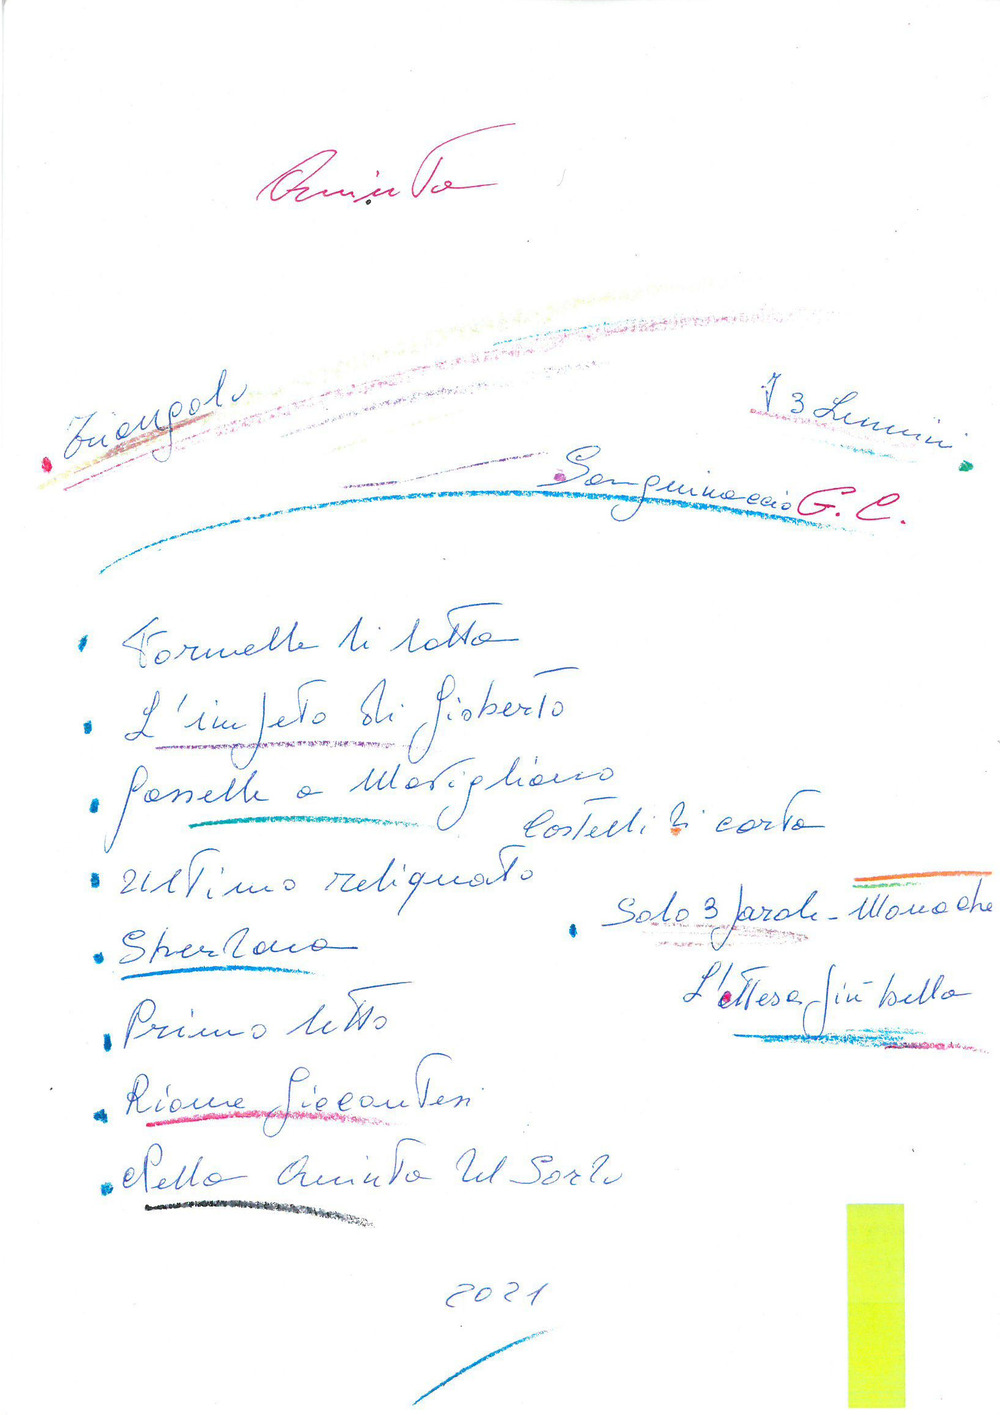 Quinta
Triangolo
I 3 Lumini
Sanguinaccio G. C.
Formelle di lotta
L'impeto di Gioberto
Passelle a Marigliano
Castelli di carta
Ultimo reliquato
Solo 3 parole - Monache
Speranza
L'attesa più bella
Primo letto
Rione Giocantesi
Nella Quinta del Sordo
2021